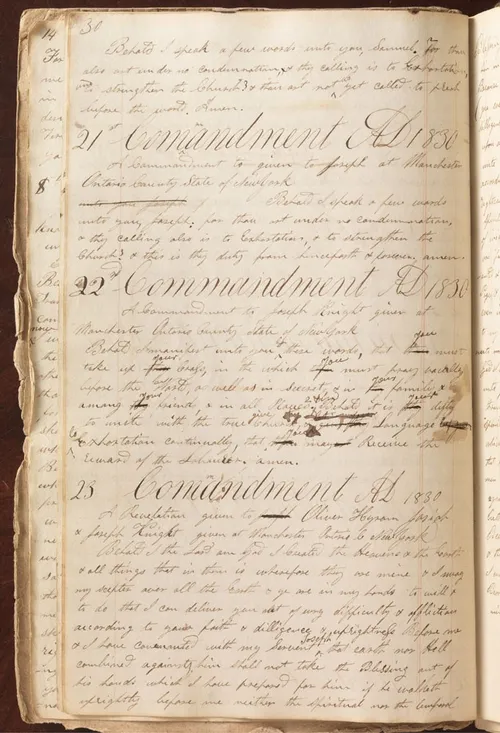 30
Behold I speak a few words unto you Samuel. for thou
also art under no condemnation & thy calling is to Exhortation
and to strengthen the Church & thou art not as yet called to preach
before the world. Amen.
21st Commandment AD 1830
A Commandment to given to Joseph at Manchester
Ontario County State of New York
Behold I speak a few words
unto you, Joseph; for thou art under no condemnation,
& thy calling also is to Exhortation, & to strengthen the
Church, & this is thy duty from henceforth & forever, amen.
22nd Commandment AD 1830
A Commandment to Joseph Knight given at
Manchester Ontario County State of New York
Behold I manifest unto you these words, that you must
take up your Cross, in the which you must pray vocally
before the World, as well as in secret, & in your family, &
among your friends & in all Places. & Behold it is your duty
to unite with the true Church & give your Language to
Exhortation continually, that you may Receive the
Reward of the Labourer. amen.
23 Commandment AD 1830
A Revelation given to Oliver Hyram Joseph
& Joseph Knight given at Manchester Ontario C New York
Behold I the Lord am God I Created the Heavens & the Earth
& all things that in them is wherefore they are mine & I sway
my scepter over all the Earth & ye are in my hands to will &
to do that I can deliver you out of evry difficulty & affliction
according to your faith & dilligence & uprightness Before me
& I have covenanted with my Servent Joseph that earth nor Hell
combined againts him shall not take the Blessing out of
his hands which I have prepared for him if he walketh
uprightly before me neither the spiritual nor the temporal